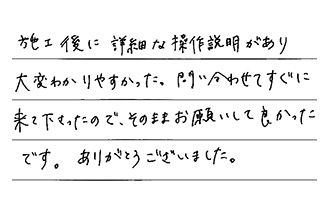 施工後に詳細な操作説明があり
大変わかりやすかった。問い合わせてすぐに
来て下さったので、そのままお願いして良かった
です。ありがとうございました。